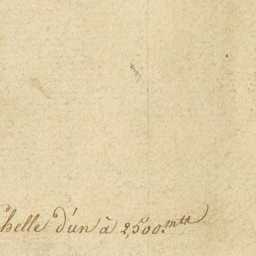 chelle d'un à 2,500.mes